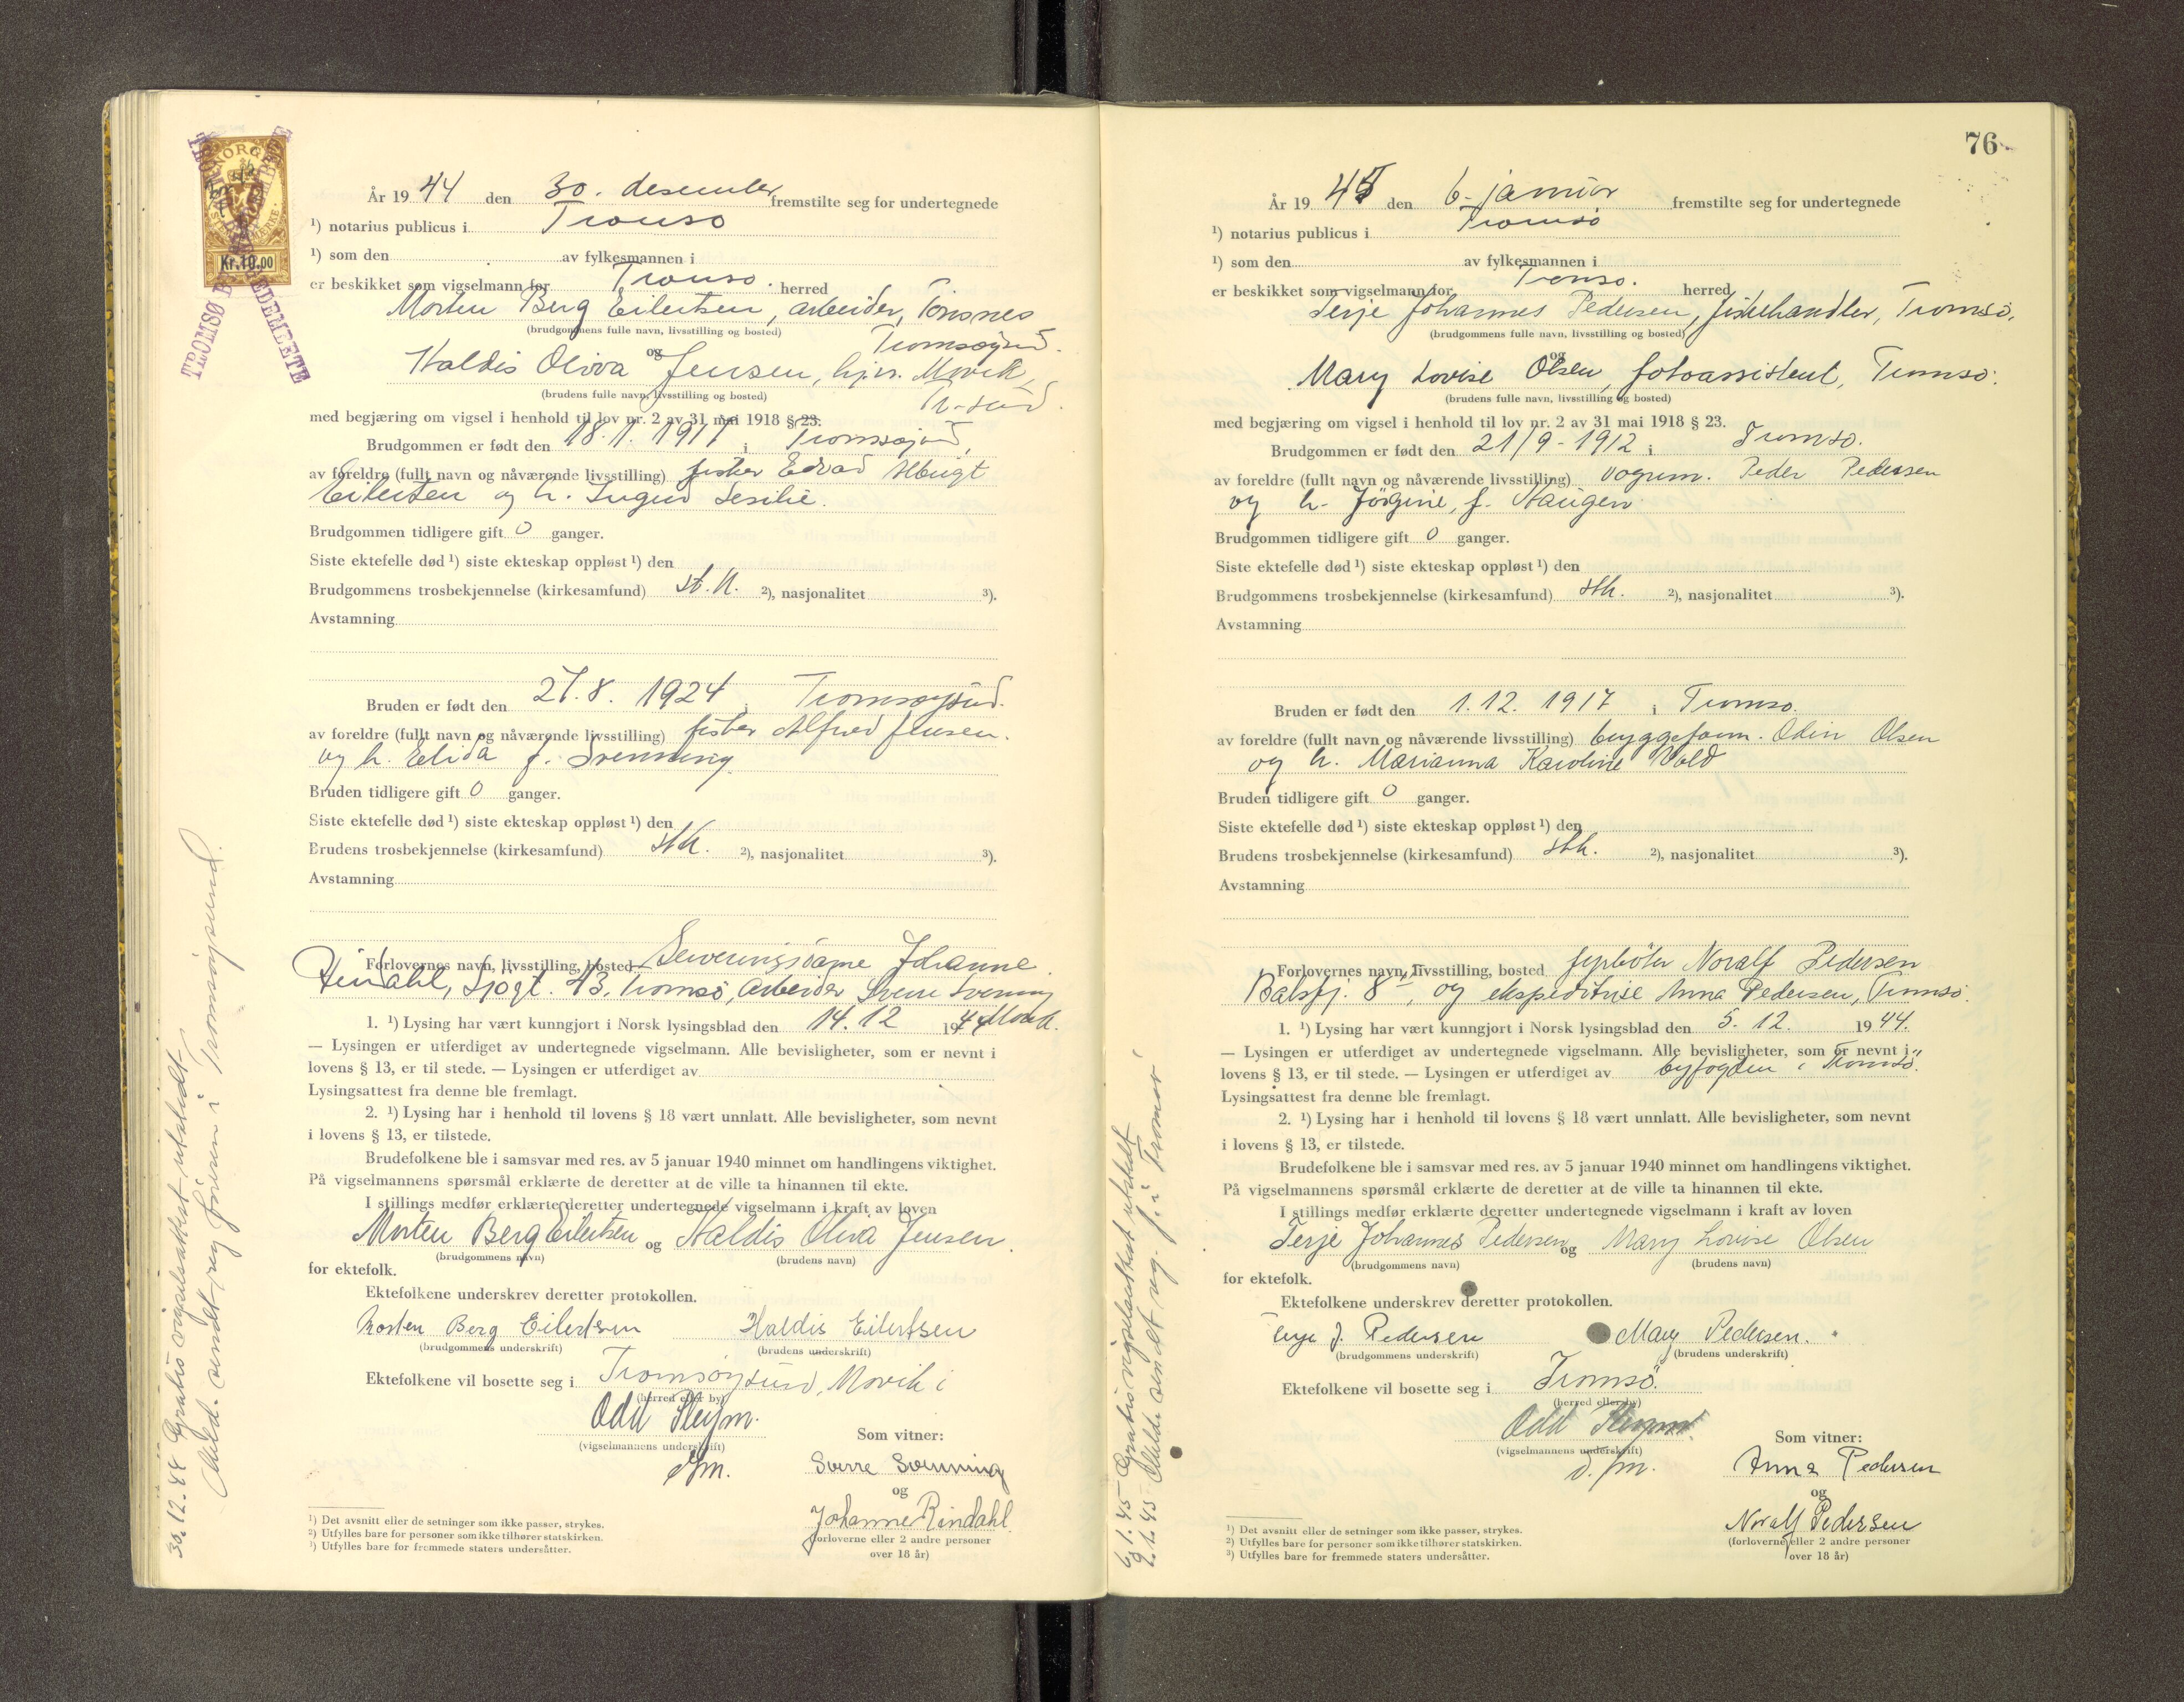 NORGE
Kr. 10.00
TROMSØ
År 1944 den 30. desember fremstilte seg for undertegnede
¹) notarius publicus i Tromsø
¹) som den av fylkesmannen i
er beskikket som vigselmann for Tromsø. herred
Morten Berg Eilertsen, arbeider, Tönsnes
(brudgommens fulle navn, livsstilling og bosted)
Tromsøysund.
og
Haldis Oliva Jensen, hjv. Movik,
(brudens fulle navn, livsstilling og bosted)
Tr-sund.
med begjæring om vigsel i henhold til lov nr. 2 av 31 mai 1918 § 23.
Brudgommen er født den 18.1.1917 i Tromsøysund,
av foreldre (fullt navn og nåværende livsstilling) fisker Edvard Albrigt
Eilertsen og h. Ingrid
Brudgommen tidligere gift 0 ganger.
Siste ektefelle død ¹) siste ekteskap oppløst ¹) den
Brudgommens trosbekjennelse (kirkesamfund) st.k. ²), nasjonalitet ³).
Avstamning
Bruden er født den 27.8. 1924 i Tromsøysund.
av foreldre (fullt navn og nåværende livsstilling) fisker Alfred Jensen.
og h. Elida f. Svenning.
Bruden tidligere gift 0 ganger.
Siste ektefelle død ¹) siste ekteskap oppløst ¹) den
Brudens trosbekjennelse (kirkesamfund) stk. ²), nasjonalitet ³).
Avstamning
Forlovernes navn, livsstilling, bosted Serveringsdame Johanne
Rindahl, Sjøgt. 43, Tromsø, Arbeider Sverre Svenning
Movik.
1. ¹) Lysing har vært kunngjort i Norsk lysingsblad den 14.12 1944
— Lysingen er utferdiget av undertegnede vigselmann. Alle bevisligheter, som er nevnt i
lovens § 13, er til stede. — Lysingen er utferdiget av
Lysingsattest fra denne ble fremlagt.
2. ¹) Lysing har i henhold til lovens § 18 vært unnlatt. Alle bevisligheter, som nevnt
i lovens § 13, er tilstede.
Brudefolkene ble i samsvar med res. av 5 januar 1940 minnet om handlingens viktighet.
På vigselmannens spørsmål erklærte de deretter at de ville ta hinannen til ekte.
I stillings medfør erklærte deretter undertegnede vigselmann i kraft av loven
Morten Berg Eilertsen og Haldis Oliva Jensen.
(brudgommens navn) (brudens navn)
for ektefolk.
Ektefolkene underskrev deretter protokollen.
Morten Berg Eilertsen Haldis Eilertsen
(brudgommens underskrift) (brudens underskrift)
Ektefolkene vil bosette seg i Tromsøysund, Movik i
(herred eller by)
Odd
(vigselmannens underskrift)
Som vitner:
Sverre Svenning
og
Johanne Rindahl.
(forloverne eller 2 andre personer
over 18 år)
¹) Det avsnitt eller de setninger som ikke passer, strykes.
²) Utfylles bare for personer som ikke tilhører statskirken.
³) Utfylles bare for fremmede staters undersåtter.
30.12.44 Gratis vigselsattest utstedt
Meld. sendt reg. föreren i Tromsøysund.
76
År 1945 den 6. januar fremstilte seg for undertegnede
¹) notarius publicus i Tromsö
¹) som den av fylkesmannen i
er beskikket som vigselmann for Tromsø. herred
Terje Johannes Pedersen, fiskehandler, Tromsö,
(brudgommens fulle navn, livsstilling og bosted)
og
Mary Lovise Olsen, fotoassistent, Tromsø.
(brudens fulle navn, livsstilling og bosted)
med begjæring om vigsel i henhold til lov nr. 2 av 31 mai 1918 § 23.
Brudgommen er født den 21/9-1912 i Tromsø.
av foreldre (fullt navn og nåværende livsstilling) vognm. Peder Pedersen
og h. Jörgine, f. Haugen
Brudgommen tidligere gift 0 ganger.
Siste ektefelle død ¹) siste ekteskap oppløst ¹) den
Brudgommens trosbekjennelse (kirkesamfund) stk. ²), nasjonalitet ³).
Avstamning
Bruden er født den 1.12. 1917 i Tromsø.
av foreldre (fullt navn og nåværende livsstilling) bryggeform. Odin Olsen
og h. Marianna Karoline Vold
Bruden tidligere gift 0 ganger.
Siste ektefelle død ¹) siste ekteskap oppløst ¹) den
Brudens trosbekjennelse (kirkesamfund) stk. ²), nasjonalitet ³).
Avstamning
Forlovernes navn, livsstilling, bosted fyrböter Noralf Pedersen
Balsfj. 8, og ekspeditrise Anna Pedersen, Tromsø.
1. ¹) Lysing har vært kunngjort i Norsk lysingsblad den 5. 12. 1944.
— Lysingen er utferdiget av undertegnede vigselmann. Alle bevisligheter, som er nevnt i
lovens § 13, er til stede. — Lysingen er utferdiget av byfogden i Tromsö.
Lysingsattest fra denne ble fremlagt.
2. ¹) Lysing har i henhold til lovens § 18 vært unnlatt. Alle bevisligheter, som nevnt
i lovens § 13, er tilstede.
Brudefolkene ble i samsvar med res. av 5 januar 1940 minnet om handlingens viktighet.
På vigselmannens spørsmål erklærte de deretter at de ville ta hinannen til ekte.
I stillings medfør erklærte deretter undertegnede vigselmann i kraft av loven
Terje Johannes Pedersen og Mary Lovise Olsen
(brudgommens navn) (brudens navn)
for ektefolk.
Ektefolkene underskrev deretter protokollen.
Terje J. Pedersen Mary Pedersen.
(brudgommens underskrift) (brudens underskrift)
Ektefolkene vil bosette seg i Tromsö.
(herred eller by)
Odd
(vigselmannens underskrift)
d. fm.
Som vitner:
Anna Pedersen
og
Noralf Pedersen
(forloverne eller 2 andre personer
over 18 år)
¹) Det avsnitt eller de setninger som ikke passer, strykes.
²) Utfylles bare for personer som ikke tilhører statskirken.
³) Utfylles bare for fremmede staters undersåtter.
6/1.45 Gratis vigselsattest utstedt
Melding sendt reg. f. i Tromsø